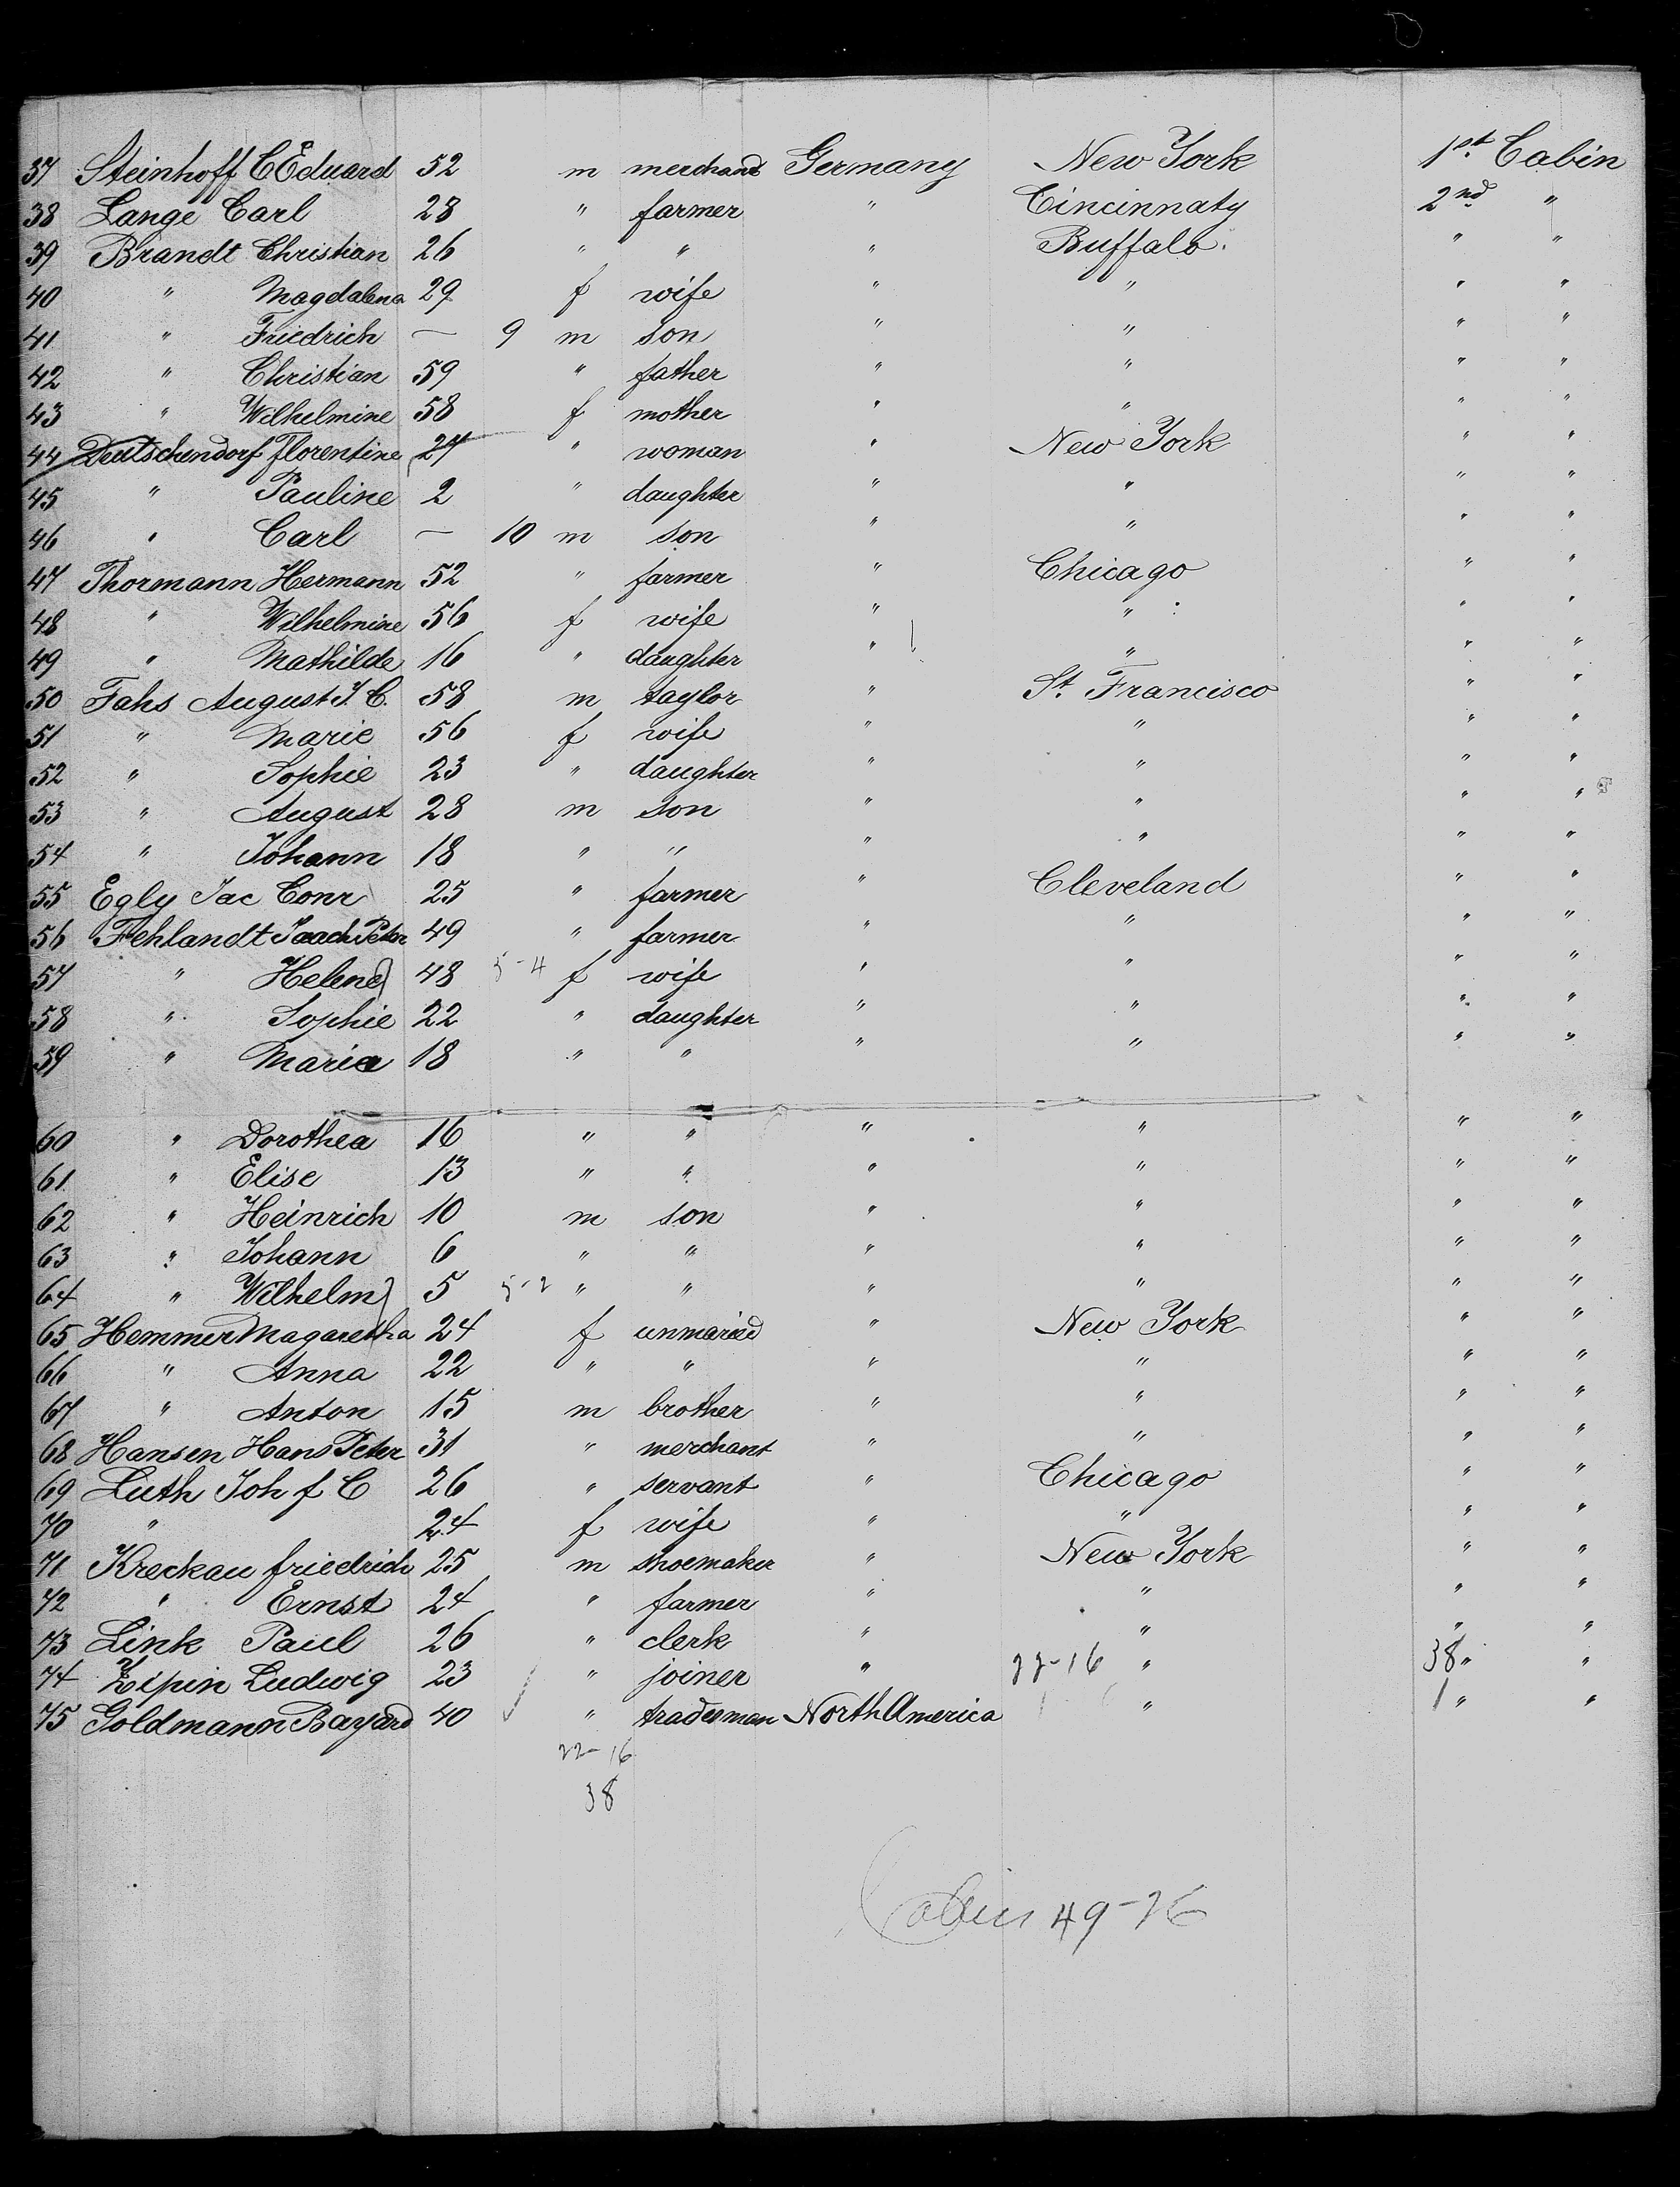 37 Steinhoff C Eduard 52 m merchand Germany New York 1st Cabin
38 Lange Carl 28 " farmer " Cincinnaty 2nd "
39 Brandt Christian 26 " " " Buffalo. " "
40 " Magdalena 29 f wife " " " "
41 " Friedrich — 9 m son " " " "
42 " Christian 59 " father " " " "
43 " Wilhelmine 58 f mother " " " "
44 Deutschendorf Florentine 27 " woman " New York " "
45 " Pauline 2 " daughter " " " "
46 " Carl — 10 m son " " " "
47 Thormann Hermann 52 " farmer " Chicago " "
48 " Wilhelmine 56 f wife " " " "
49 " Mathilde 16 " daughter " " " "
50 Fahs August J. C. 58 m taylor " St. Francisco " "
51 " Marie 56 f wife " " " "
52 " Sophie 23 " daughter " " " "
53 " August 28 m son " " " "
54 " Johann 18 " " " " " "
55 Egly Jac Conr 25 " farmer " Cleveland " "
56 Fehlandt Peter 49 " farmer " " " "
57 " Helene 48 5-4 f wife " " " "
58 " Sophie 22 " daughter " " " "
59 " Maria 18 " " " " " "
60 " Dorothea 16 " " " " " "
61 " Elise 13 " " " " " "
62 " Heinrich 10 m son " " " "
63 " Johann 6 " " " " " "
64 " Wilhelm 5 5-2 " " " " " "
65 Hemmer Magaretha 24 f unmaried " New York " "
66 " Anna 22 " " " " " "
67 " Anton 15 m brother " " " "
68 Hansen Hans Peter 31 " merchant " " " "
69 Luth Joh f C 26 " servant " Chicago " "
70 " 24 f wife " " " "
71 Kreckau friedrich 25 m shoemaker " New York " "
72 " Ernst 24 " farmer " " " "
73 Link Paul 26 " clerk " " " "
74 Zipin Ludwig 23 " joiner " 22-16 " 38 " "
75 Goldmann Bayard 40 " tradesman North America " 1 " "
22-16
38
Cabin 49-26